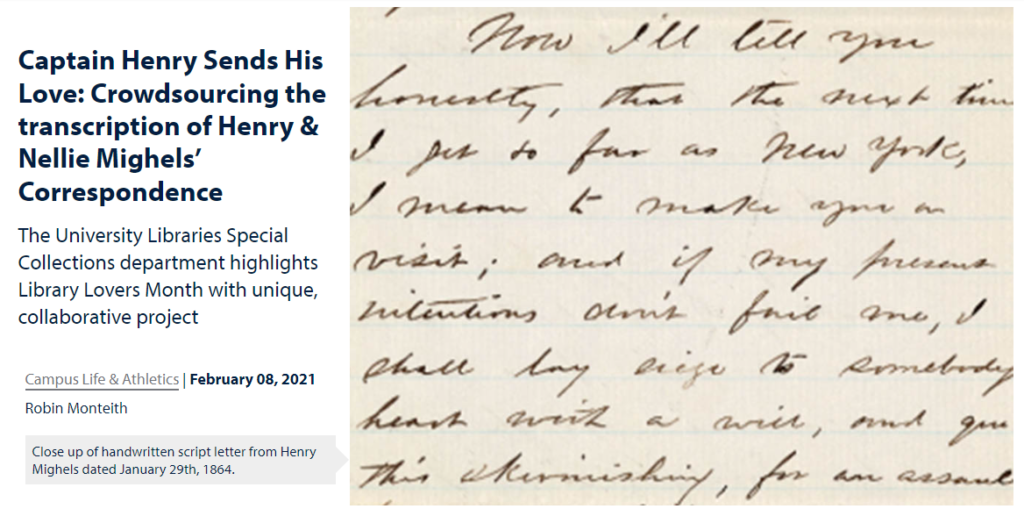 Captain Henry Sends His
Love: Crowdsourcing the
transcription of Henry &
Nellie Mighels’
Correspondence
The University Libraries Special
Collections department highlights
Library Lovers Month with unique,
collaborative project
Campus Life & Athletics | February 08, 2021
Robin Monteith
Close up of handwritten script letter from Henry
Mighels dated January 29th, 1864.
Now I'll tell you
honestly, that the next tim
I get so far as New York,
I mean to make you a
visit; and if my present
intentions don't fail me, I
shall lay siege to somebody
heart with a will, and
this skirmishing, for an assaul